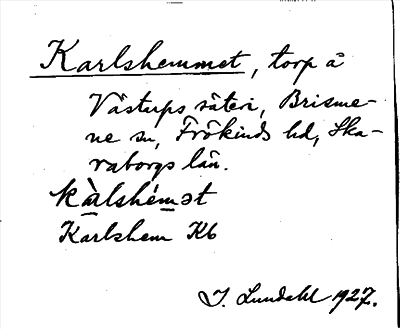 Karlshemmet, torp å
Västerps säteri, Brisme-
ne sn, Frökinds hd, Ska-
raborgs län.
kàlshémət
Karlshem Kb
I. Lundahl 1927.